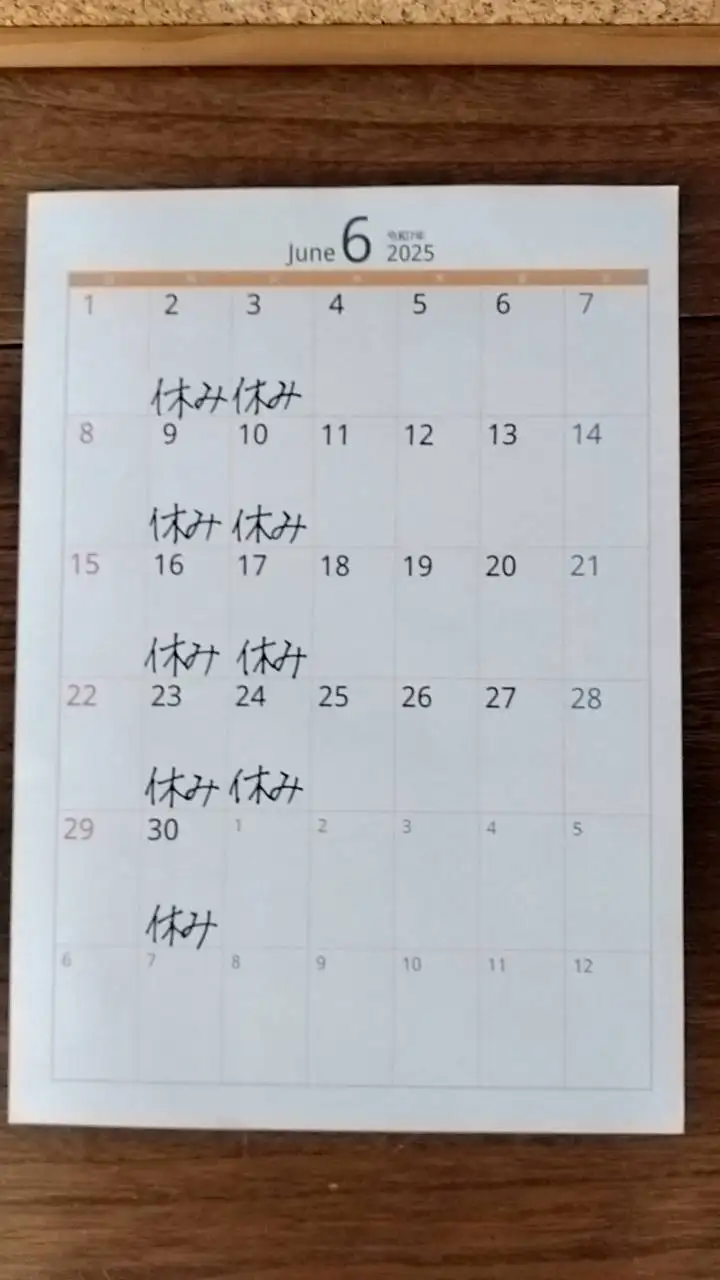 June 6 令和7年 2025
1 2 3 4 5 6 7
休み 休み
8 9 10 11 12 13 14
休み 休み
15 16 17 18 19 20 21
休み 休み
22 23 24 25 26 27 28
休み 休み
29 30 1 2 3 4 5
休み
6 7 8 9 10 11 12